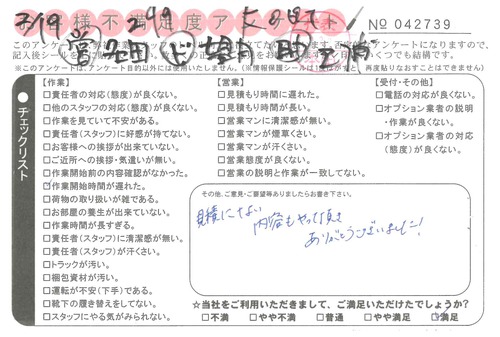 7/19
お客様不満足度アンケート
No 042739
このアンケートは
記入後シールを
くても結構です。
(※このアンケートは、アンケート目的以外には使用いたしません。(※情報保護シールは1枚
再度貼りなおすことはできません)
チェックリスト
【作業】
□責任者の対応(態度)が良くない。
□他のスタッフの対応(態度)が良くない。
□作業を見ていて不安がある。
□責任者(スタッフ)に好感が持てない。
□お客様への挨拶が出来ていない。
□ご近所への挨拶・気遣いが無い。
□作業開始前の内容確認がなかった。
□作業開始時間が遅れた。
□荷物の取り扱いが雑である。
□お部屋の養生が出来ていない。
□作業時間が長すぎる。
□責任者(スタッフ)に清潔感が無い。
□責任者(スタッフ)が汗くさい。
□トラックが汚い。
□梱包資材が汚い。
□運転が不安(下手)である。
□靴下の履き替えをしてない。
□スタッフにやる気がみられない。
【営業】
□見積もり時間に遅れた。
□見積もり時間が長い。
□営業マンに清潔感が無い。
□営業マンが煙草くさい。
□営業マンが汗くさい。
□営業態度が良くない。
□営業の説明と作業が一致してない。
【受付・その他】
□電話の対応が良くない。
□オプション業者の説明
・作業が良くない。
□オプション業者の対応
(態度)が良くない。
その他、ご意見・ご要望等ありましたらお書き下さい。
見積にない
内容もやって頂き
ありがとうございました!
☆当社をご利用いただきまして、ご満足いただけたでしょうか?
□不満 □やや不満 □普通 □やや満足 ☑満足